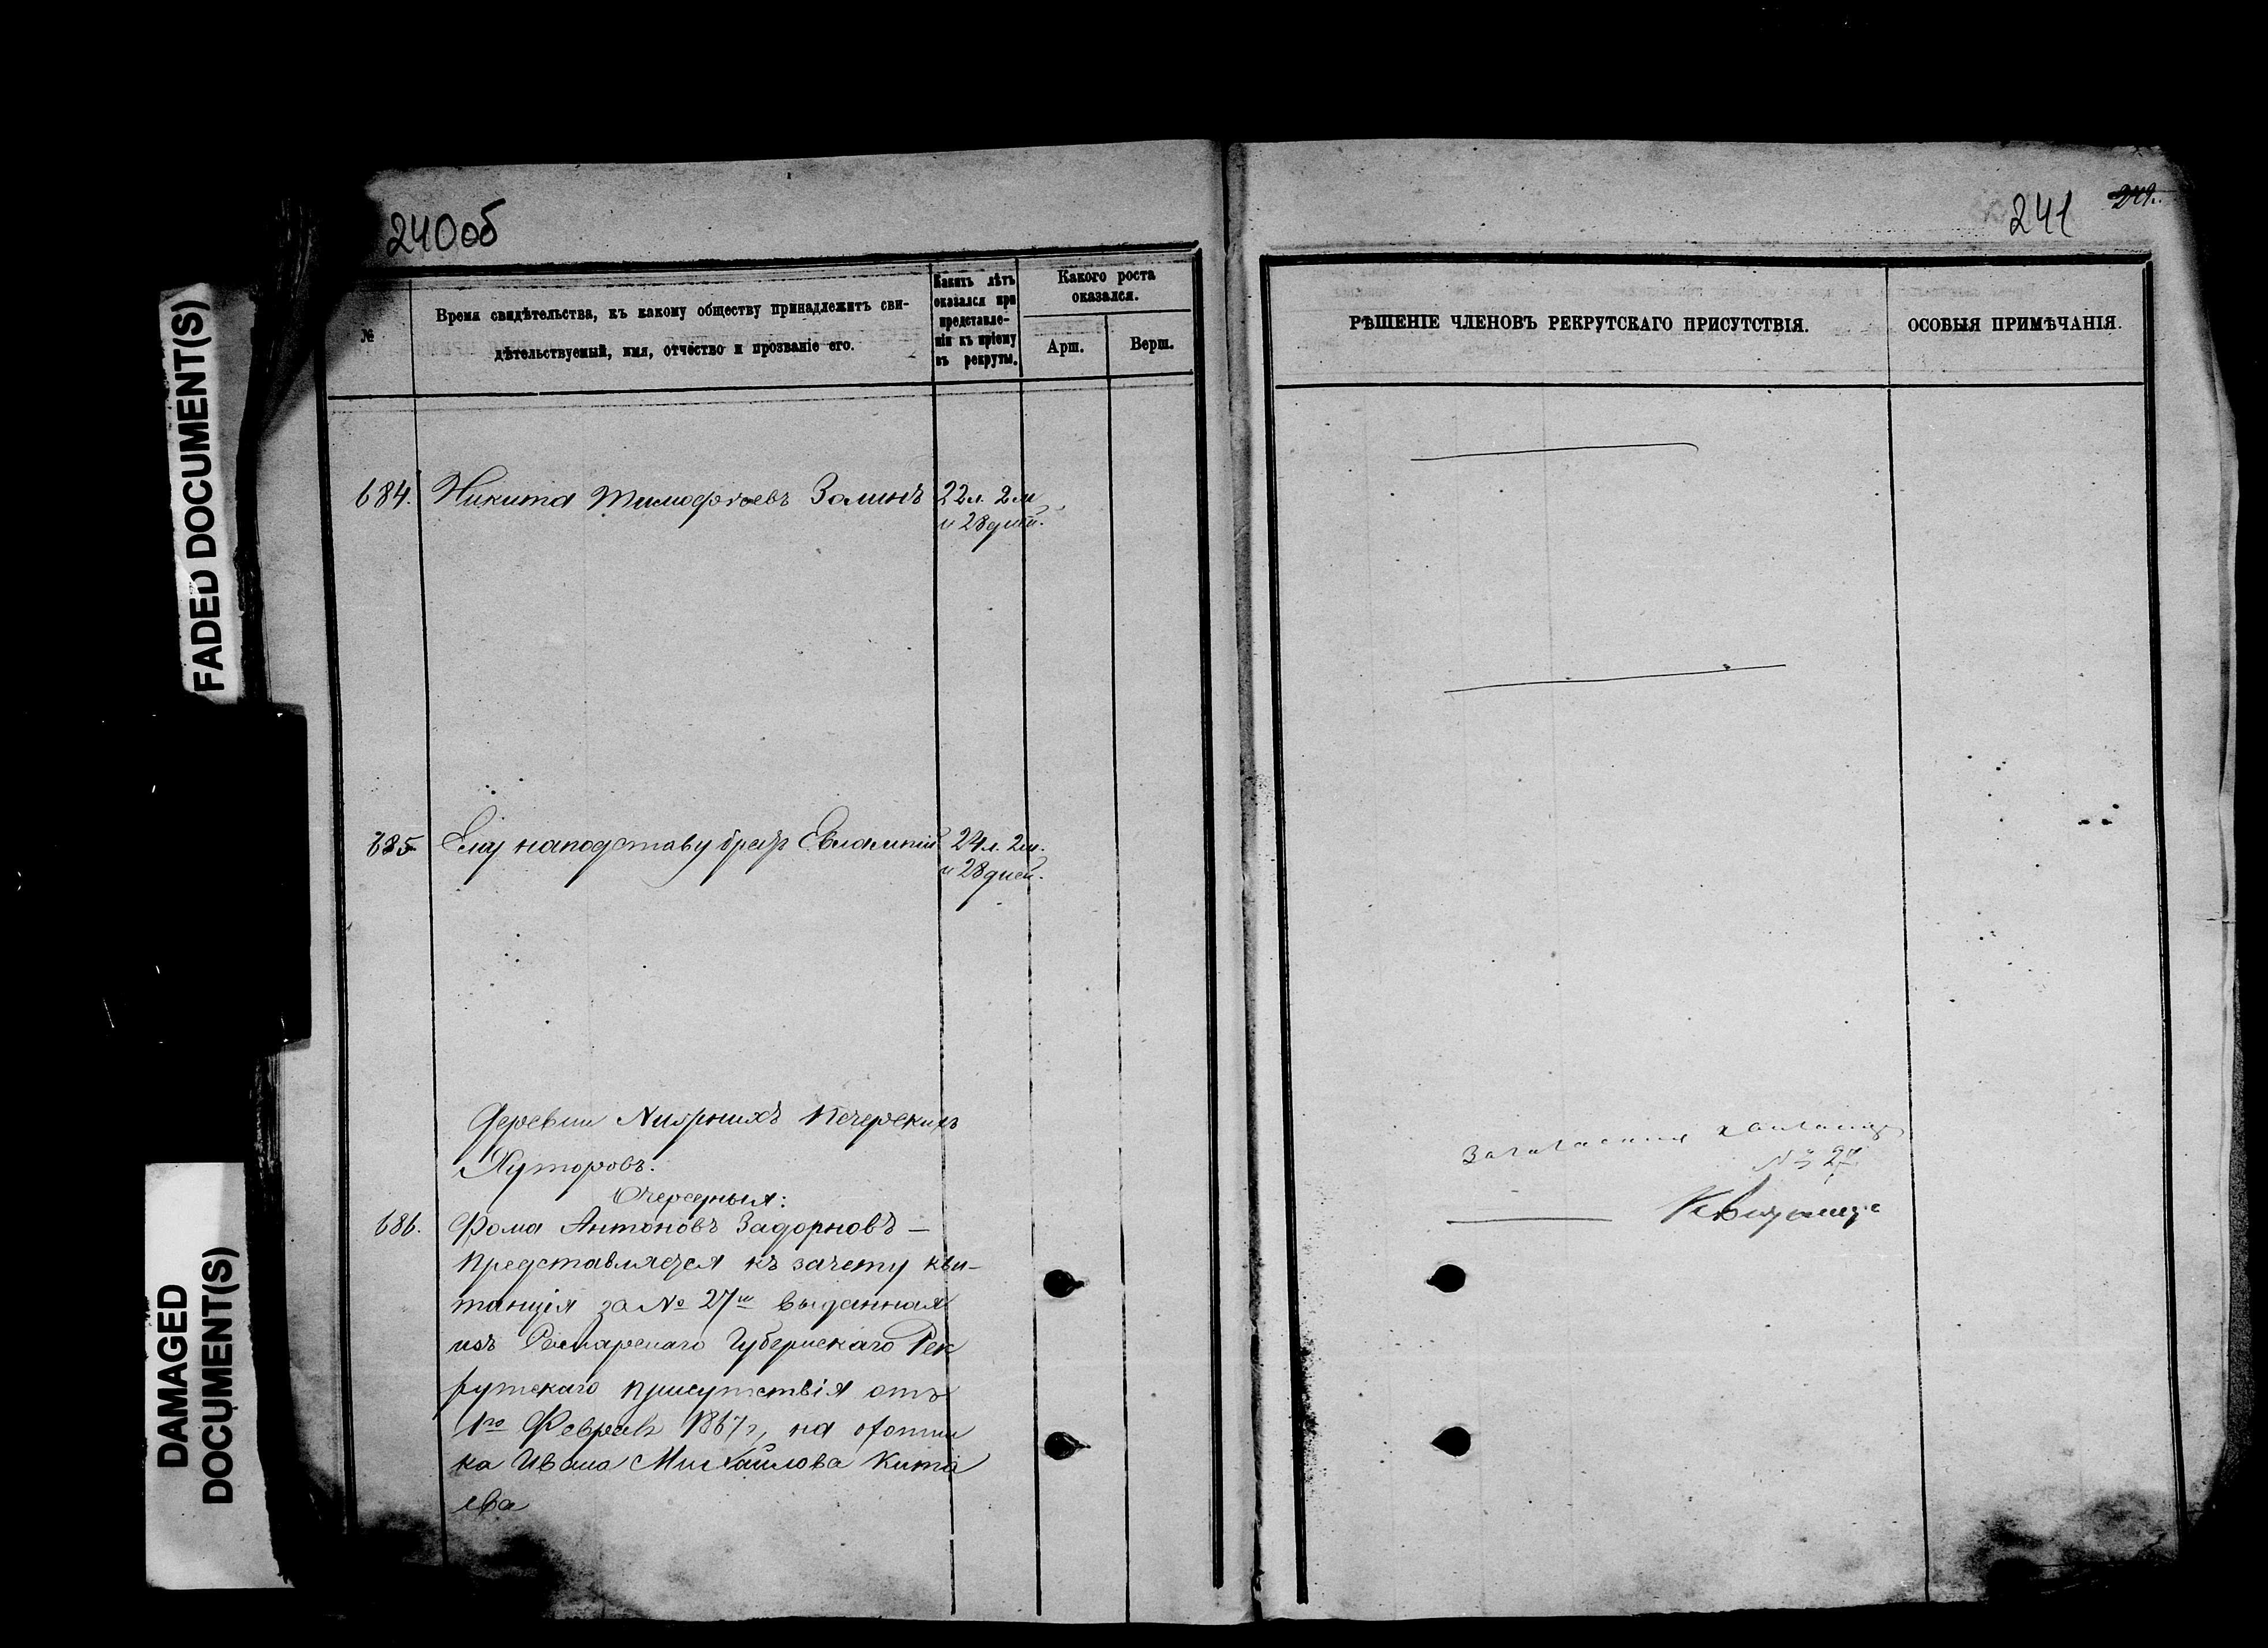 FADED DOCUMENT(S)
DAMAGED
DOCUMENT(S)
240об
№
Время свидѣтельства, къ какому обществу принадлежитъ сви-
дѣтельствуемый, имя, отчество и прозваніе его.
Какихъ лѣтъ
оказался при
представле-
ніи къ пріему
въ рекруты.
Какого роста
оказался.
Арш.
Верш.
684. Никита Тимофѣевъ Золинъ 22 л. 2 м
и 28 дней.
685. Ему наподставу братъ Евлампій 24 л. 2 м.
и 28 дней.
Деревни Печерскихъ
Хуторовъ.
Очередныя:
686. Фома Антоновъ Задорновъ —
представляется къ зачету кви-
танція за № 27м выданная
изъ Самарскаго Губернскаго Рек
рутскаго присутствія отъ
1го Февраля 1867 г, на охотни
ка Ивана Михайлова Кита
ева
241
249.
РѢШЕНІЕ ЧЛЕНОВЪ РЕКРУТСКАГО ПРИСУТСТВІЯ.
ОСОБЫЯ ПРИМѢЧАНІЯ.
№ 27